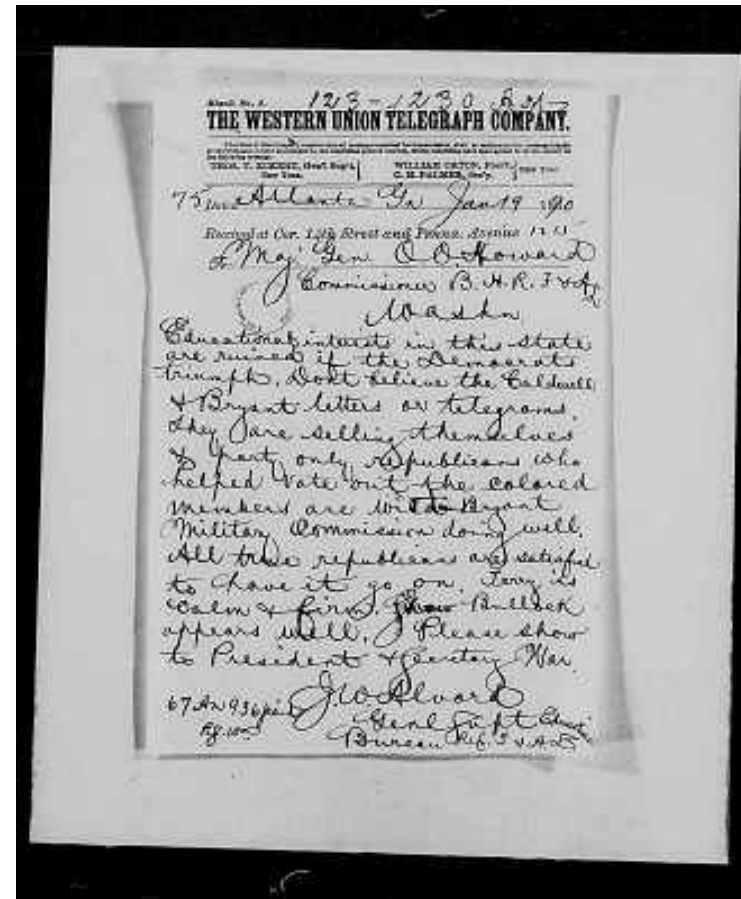 Blank No. 2.
123-1230
THE WESTERN UNION TELEGRAPH COMPANY.
THOS. T. ECKERT, Gen'l Sup't, New York.
WILLIAM ORTON, Pres't, O. H. PALMER, Sec'y, New York
75 Dated Atlanta Ga Jan 19 1870
Received at Cor. 14th Street and Penna. Avenue 12 15
To Maj Gen O O. Howard
Commissioner B. R. F & A
Washn
Educational interests in this state
are ruined if the Democrats
triumph. Dont believe the Caldwell
& Bryant letters or telegrams.
They are selling themselves
& party only republicans who
helped vote out the colored
members are with Bryant
Military Commission doing well.
All true republicans are satisfied
to have it go on. Terry is
calm & firm. Bullock
appears well. Please show
to President & Secretary War.
J W Alvord
Genl Supt
Bureau Ref. F & A L
67 An 936 paid